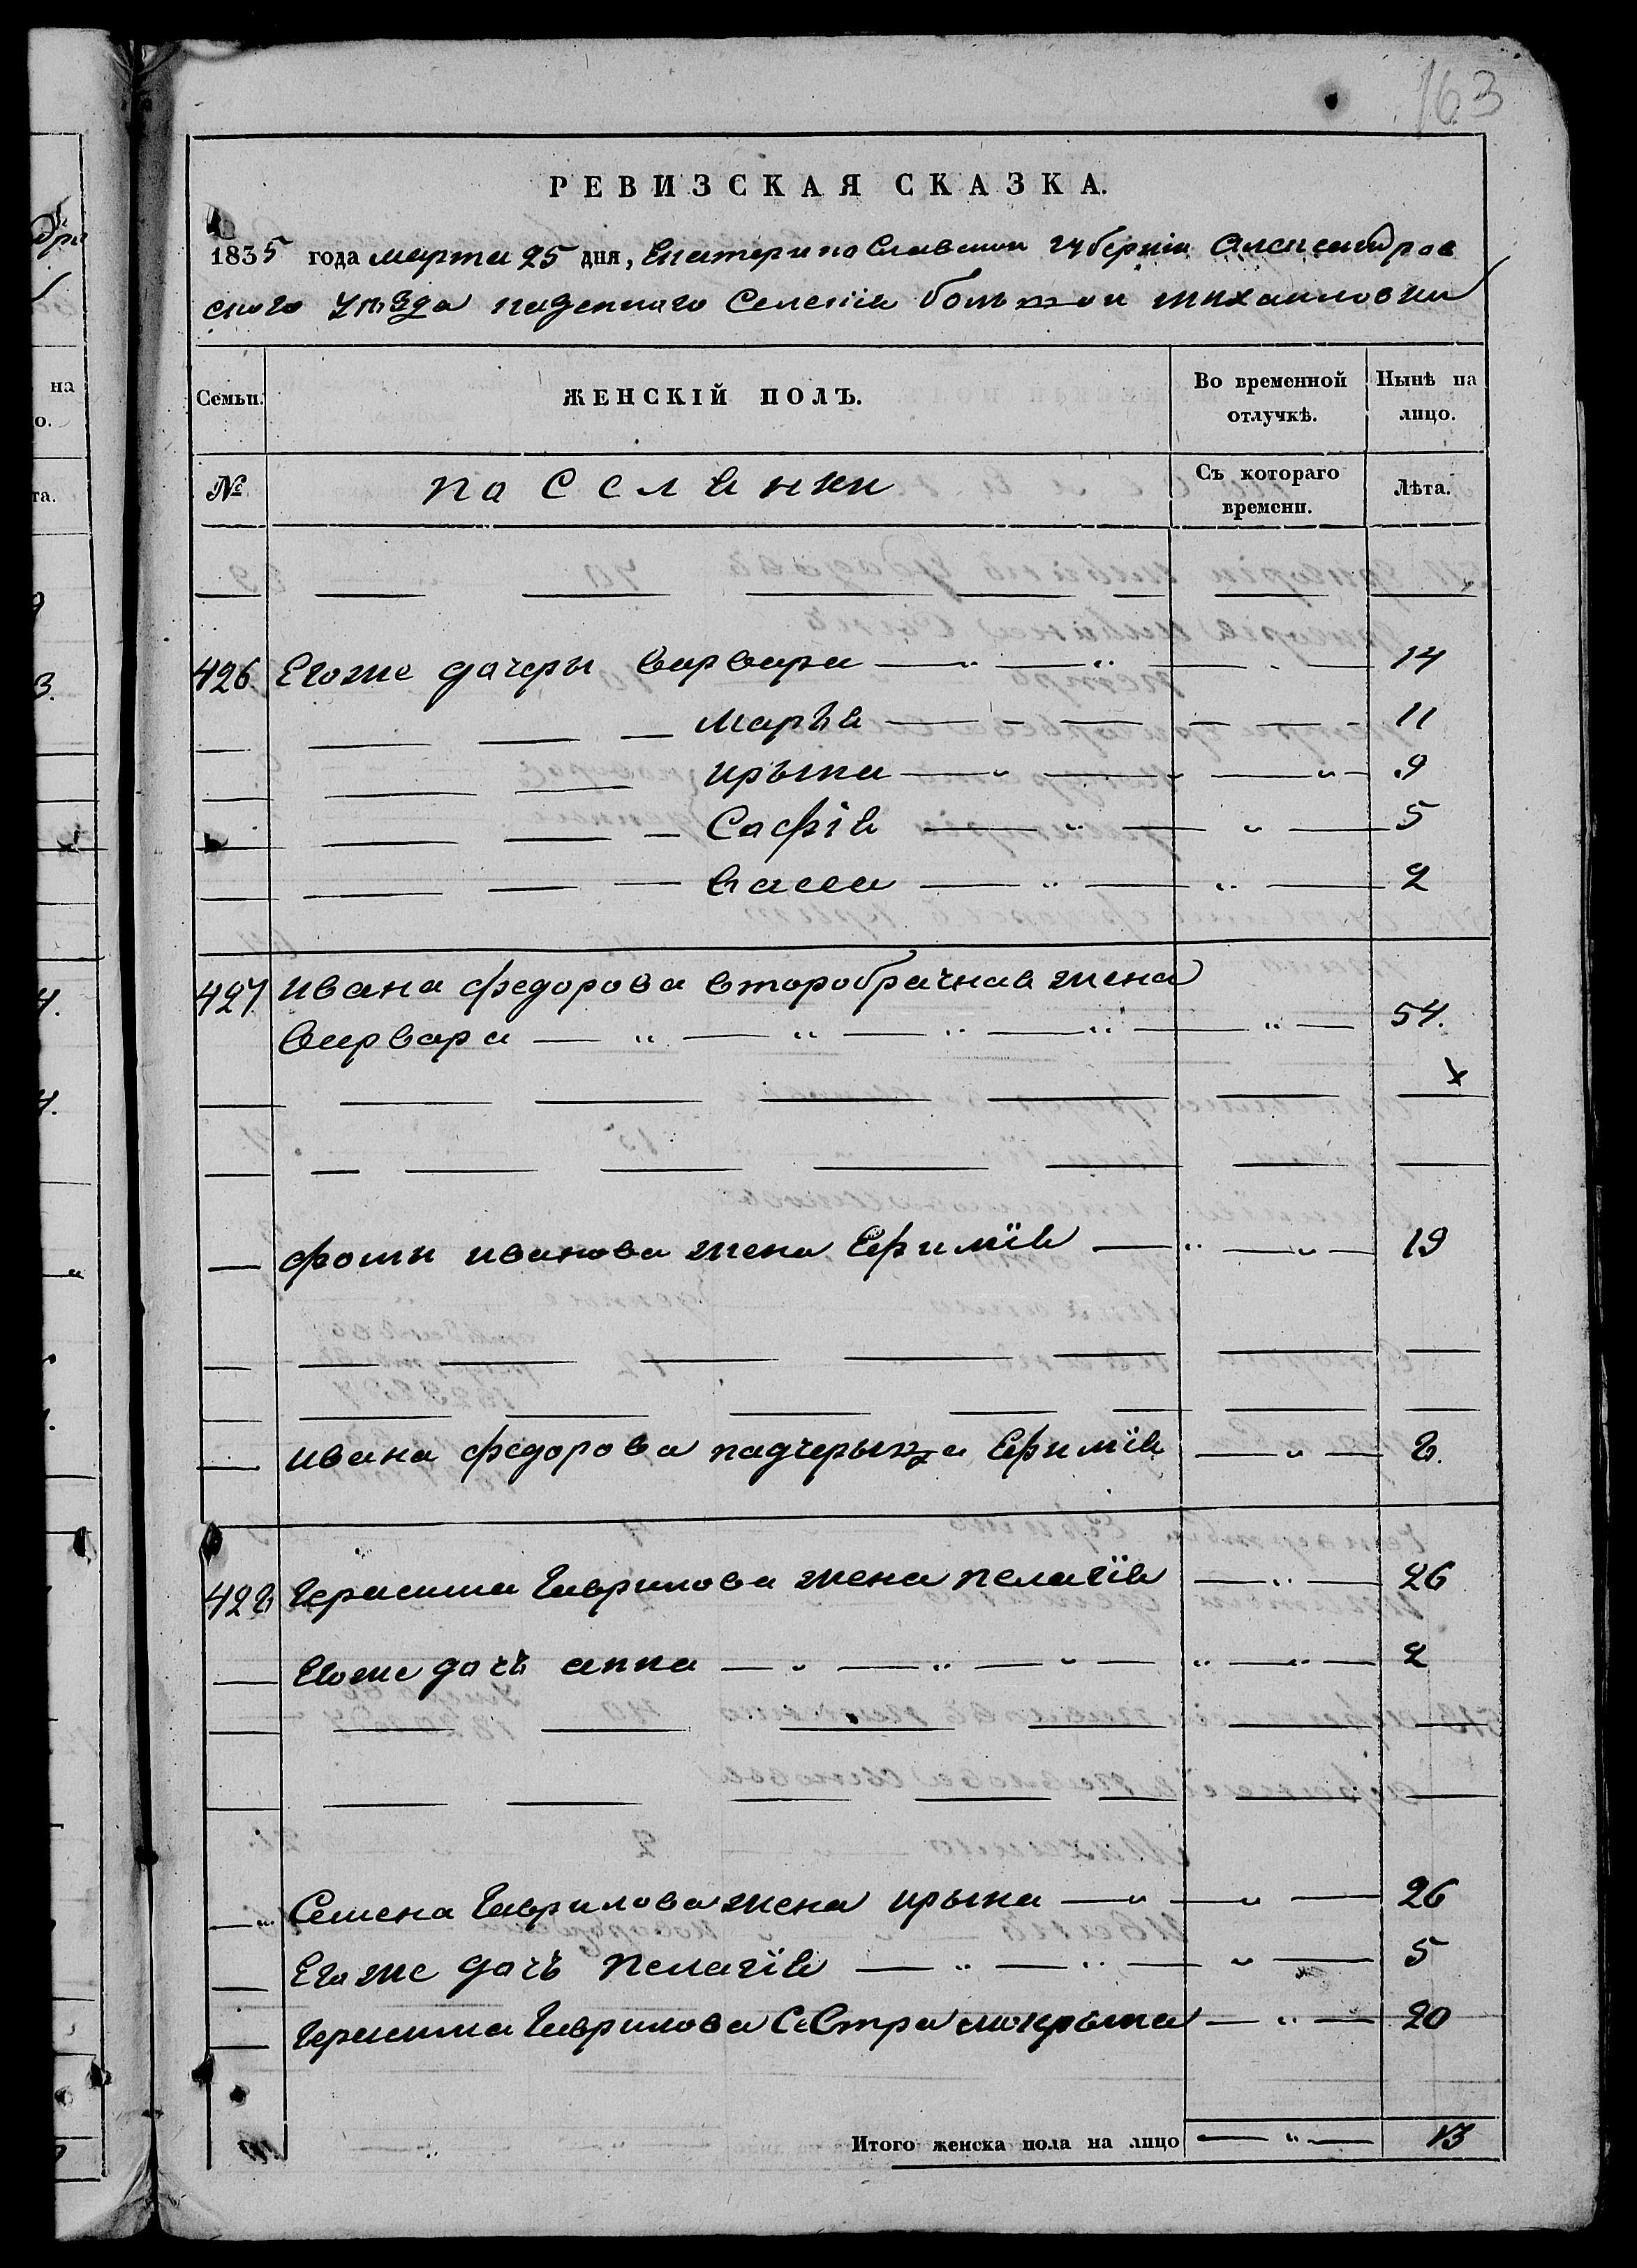 163
РЕВИЗСКАЯ СКАЗКА.
1835 года марта 25 дня, Екатеринославской губерніи Александров
ского уѣзда казенного Селенія большой михаиловки
Семьи. ЖЕНСКІЙ ПОЛЪ. Во временной отлучкѣ. Нынѣ на лицо.
№ поселянки Съ котораго времени. Лѣта.
426. Егоже дочеры варвара 14
маръя 11
ирына 9
Софія 5
васса 2
427. ивана федорова второбрачная жена
варвара 54.
х
фомы иванова жена Ефимїя 19
ивана федорова падчерыца Ефимїя 8.
428 герасима гаврилова жена пелагїя 26
Егоже дочъ анна 2
Семена гаврилова жена ирына 26
Егоже дочъ пелагїя 5
герасима гаврилова СеСтра мокрына 20
Итого женска пола на лицо 13